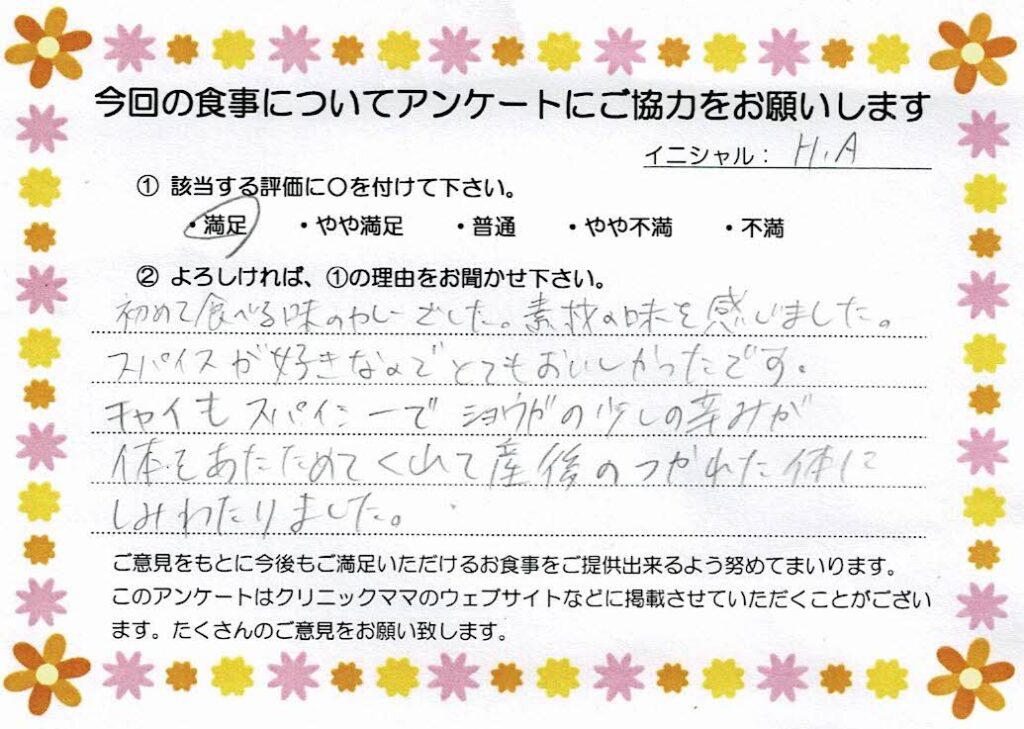 今回の食事についてアンケートにご協力をお願いします
イニシャル： H.A
① 該当する評価に〇を付けて下さい。
・満足 ・やや満足 ・普通 ・やや不満 ・不満
② よろしければ、①の理由をお聞かせ下さい。
初めて食べる味のカレーでした。素材の味を感じました。
スパイスが好きなのでとてもおいしかったです。
チャイもスパイシーでショウガの少しの辛みが
体をあたためてくれて産後のつかれた体に
しみわたりました。
ご意見をもとに今後もご満足いただけるお食事をご提供出来るよう努めてまいります。
このアンケートはクリニックママのウェブサイトなどに掲載させていただくことがござい
ます。たくさんのご意見をお願い致します。